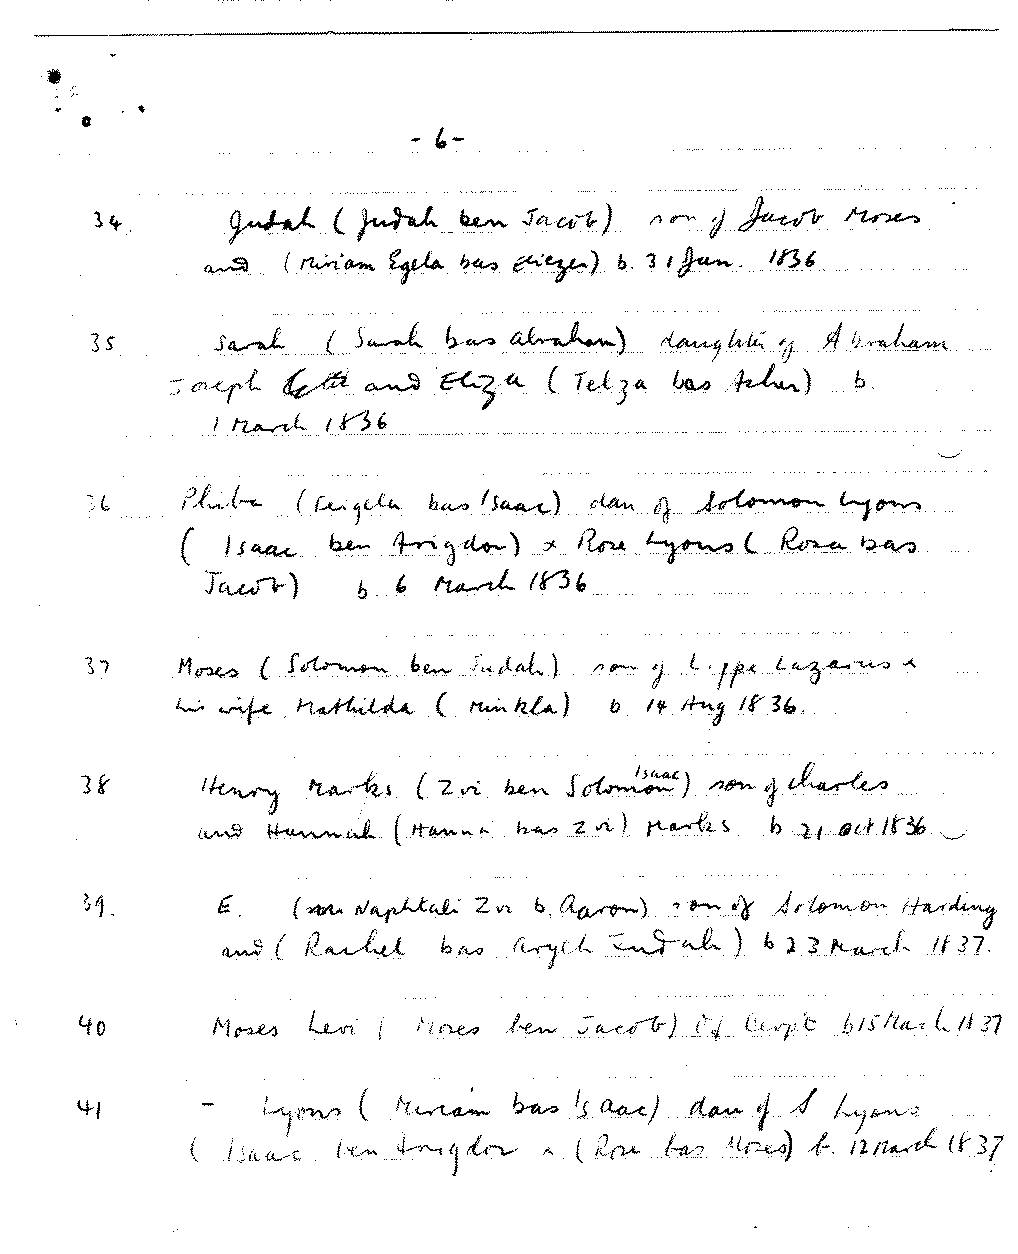 - 6 -
34. Judah (Judah ben Jacob) son of Jacob Moses
and (Miriam Egela bas Eliezer) b. 31 Jan. 1836
35 Sarah (Sarah bas Abraham) daughter of Abraham
Joseph and Eliza (Telza bas Asher) b.
1 March 1836
36 Phiba (Feigela bas Isaac) dau of Solomon Lyons
(Isaac ben Avigdor) x Rose Lyons (Rosa bas
Jacob) b. 6 March 1836
37 Moses (Solomon ben Judah) son of Lippe Lazarus x
his wife Mathilda (Minkla) b 14 Aug 1836.
38 Henry Marks (Zvi ben Solomon Isaac) son of Charles
and Hannah (Hanna bas Zvi) Marks b 21 Oct 1836
39. E. (Naphtali Zvi b. Aaron) son of Solomon Harding
and (Rachel bas Aryeh Judah) b 23 March 1837.
40 Moses Levi (Moses ben Jacob) b 15 March 1837
41 - Lyons (Miriam bas Isaac) dau of S Lyons
(Isaac ben Avigdor x (Rose bas Moses) b. 12 March 1837